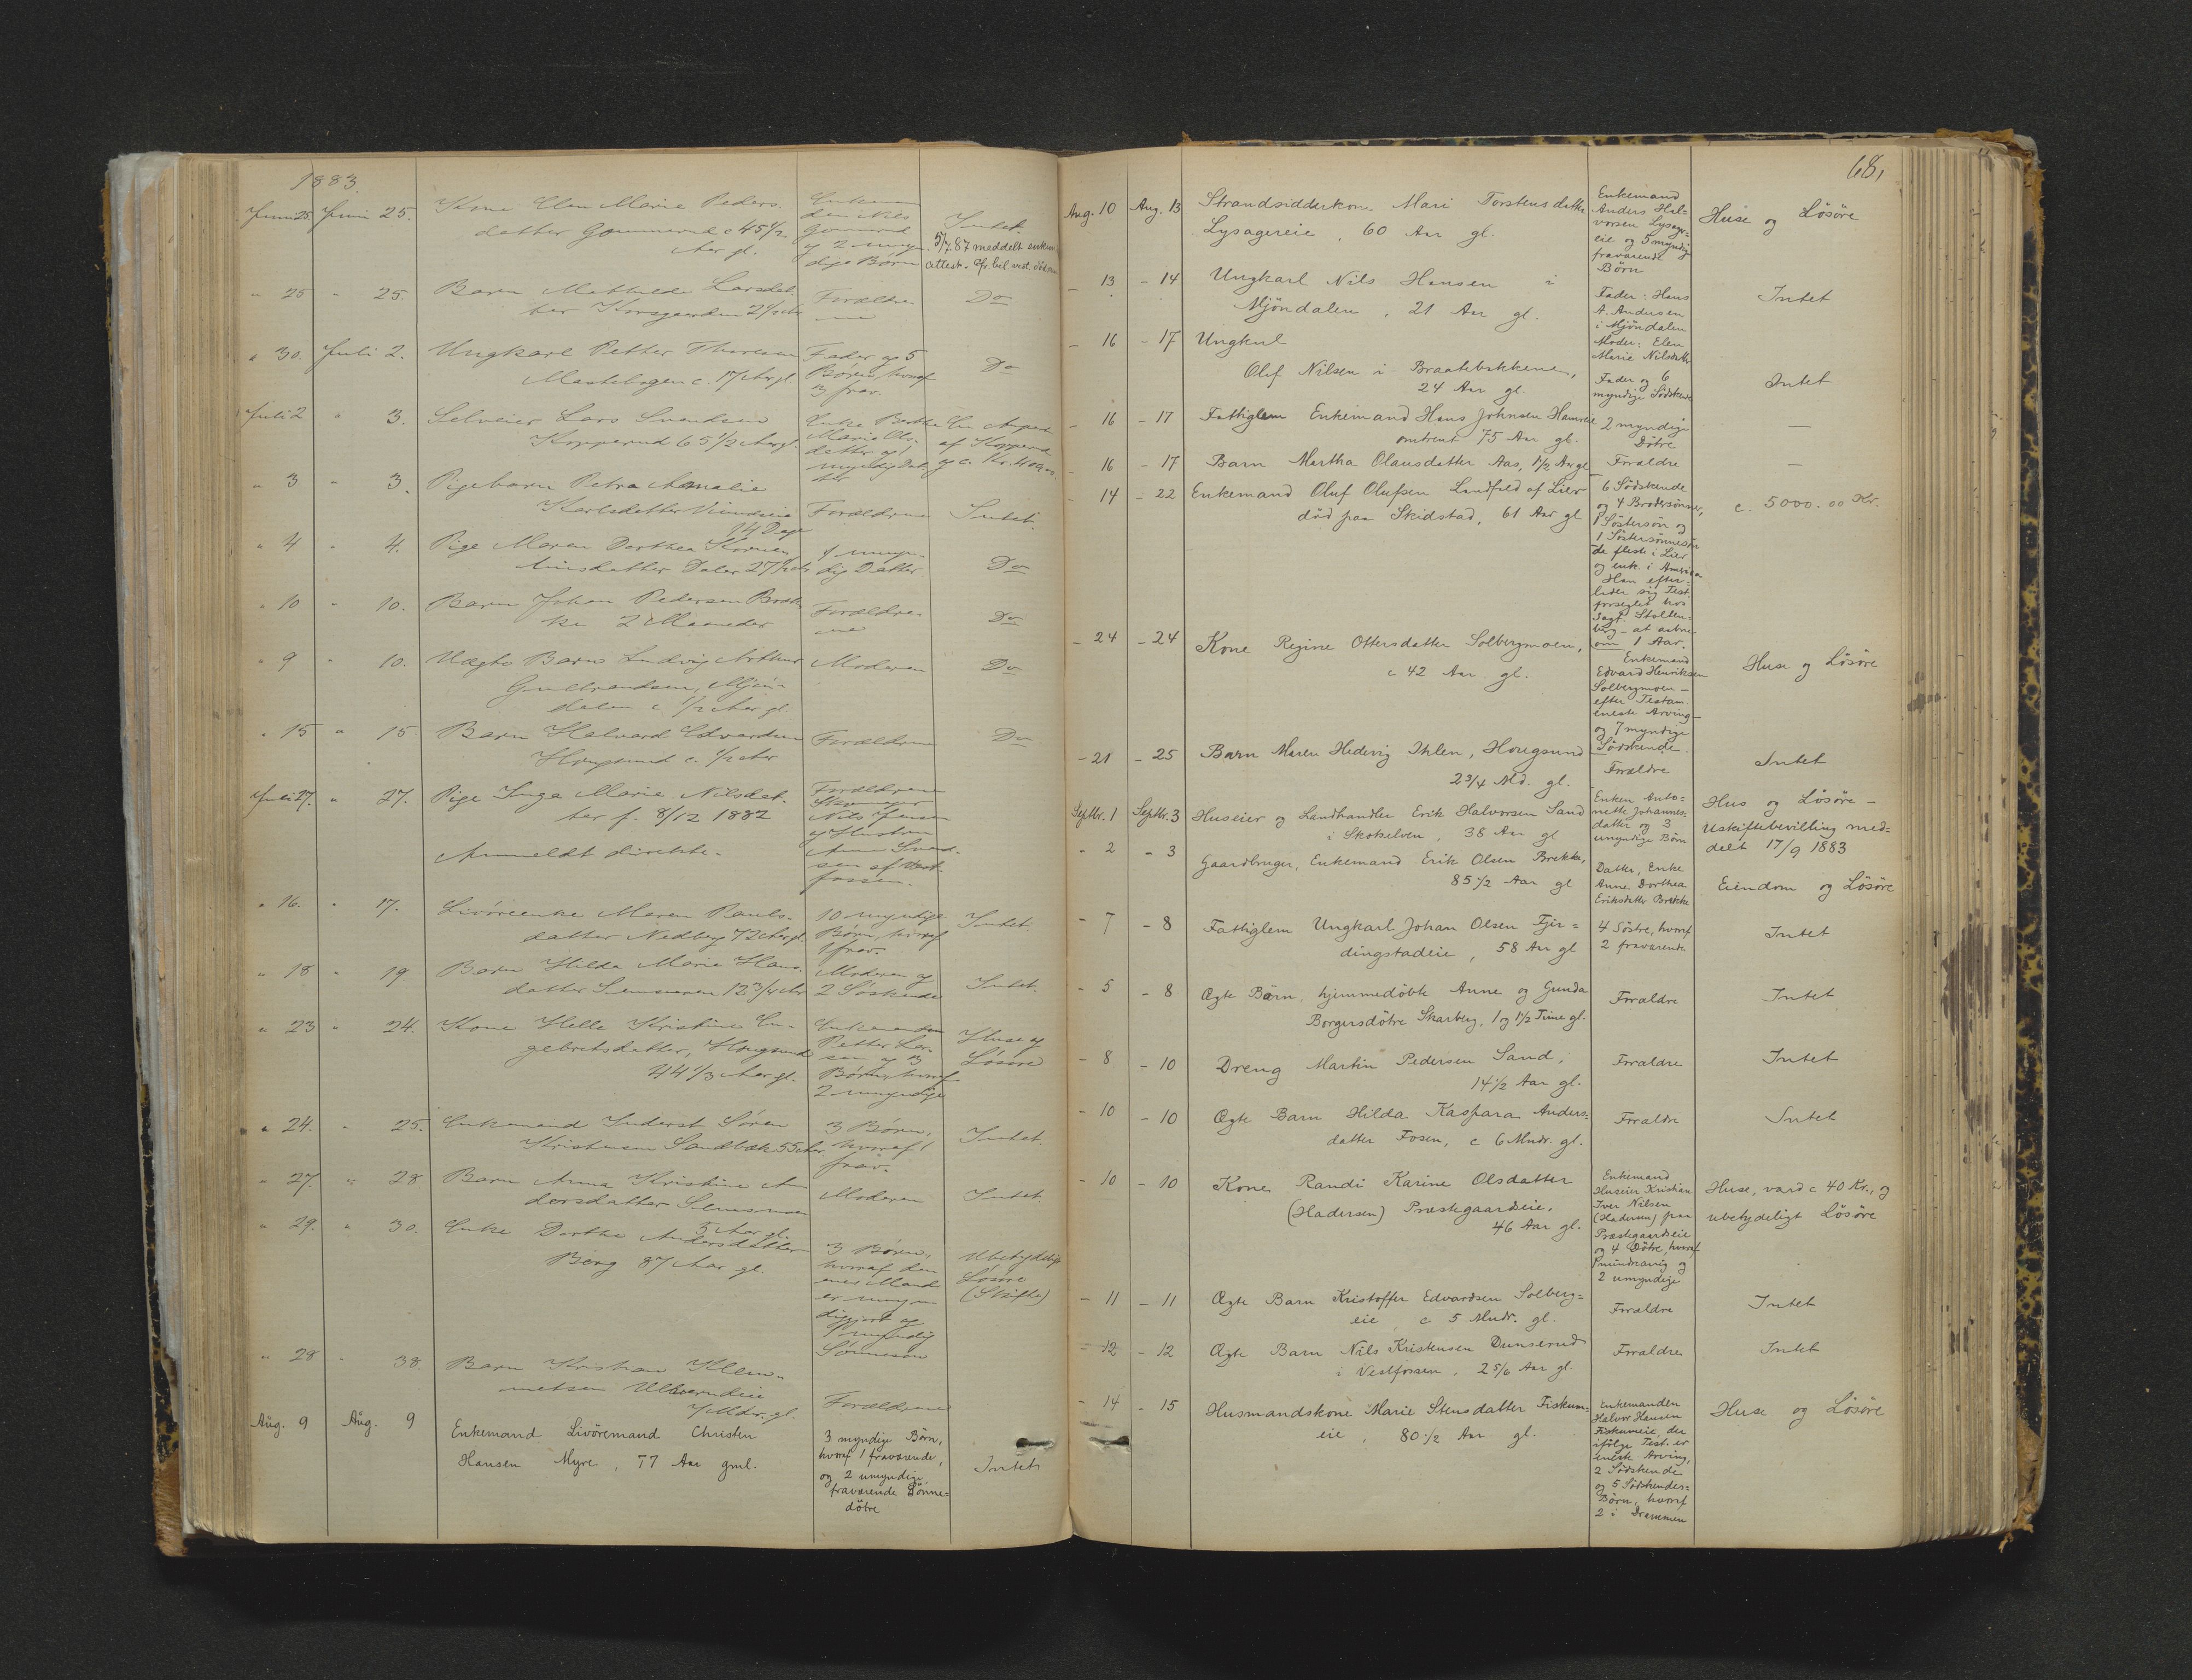 1883.
Juni 25. Juni 25. Kone Elen Marie Peders-
datter Gommerud c 45 1/2
Aar gl.
Enkeman
den Nils
Gommerud
og 2 umyn-
dige Børn
Intet.
5/7 87 meddelt enkem.
attest.
" 25 " 25. Barn Mathilde Larsdat-
ter Korsgaarden 2 1/2 Aar
Forældre
ne
Do
" 30. Juli 2. Ungkarl Petter Thoresen
c. 17 Aar gl.
Fader og 5
Børn, hvoraf
3 frav.
Do
Juli 2 " 3. Selveier Lars Svendsen
Kopperud 65 1/2 Aar gl.
Enke Berthe
Marie Ols-
datter og 1
myndig Dat-
ter
En Anpart
af Kopperud
og c. Kr. 400.00
" 3 " 3. Pigebarn Petra Amalie
Karlsdatter
14 Dage
Forældrene
Intet.
" 4 " 4. Pige Maren Dorthea
Daler 27 1/2 Aar
1 umyn-
dig Datter
Do
" 10 " 10. Barn Johan Pedersen Bræk-
ke 2 Maaneder
Forældre-
ne
Do
" 9 " 10. Uægte Barn Ludvig Arthur
Gulbrandsen, Mjøn-
dalen c 1/2 Aar gl.
Moderen
Do
" 15 " 15 Barn Halvard Edvardsen
Hougsund c. 1/2 Aar
Forældrene
Do
Juli 27. " 27. Pige Inga Marie Nilsdat-
ter f. 8/12 1882
Anmeldt direkte.
Forældrene
Nils Jensen
og Hustru
Anna Svend-
sen af Vest-
fossen.
" 16. " 17. Livøreenke Maren Pauls-
datter Nedberg 72 Aar gl.
10 myndige
Børn, hvoraf
1 frav.
Intet.
" 18 " 19 Barn Hilda Marie Hans-
datter Semsmoen 12 3/4 Aar
Moderen og
2 Søskende
Intet.
" 23 " 24. Kone Helle Kristine En-
gebretsdatter, Hougsund
44 1/3 Aar gl.
Enkemanden
Petter Lar-
sen og 3
Børn, hvoraf
2 umyndige
Huse og
Løsøre
" 24. " 25. Enkemand Inderst Søren
Kristensen Sandbæk 55 Aar
3 Børn,
hvoraf 1
frav.
Intet.
" 27. " 28 Barn Anna Kristine An
dersdatter Semsmoen
5 Aar gl.
Moderen
Intet
" 29. " 30. Enke Dorthe Andersdatter
Berg 87 Aar gl.
3 Børn,
hvoraf den
enes Mand
er umyn-
diggjort og
1 myndig
Sønnesøn
Ubetydeligt
Løsøre
(Skifte)
" 28 " 38. Barn Kristian Klem-
metsen Ulverudeie
7 Mdr. gl.
Forældrene
Aug. 9 Aug. 9 Enkemand Livöremand Christen
Hansen Myre, 77 Aar gml.
3 myndige Börn,
hvoraf 1 fraværende,
og 2 umyndige,
fraværende Sönne=
dötre
Intet
68,
Aug. 10 Aug. 13 Strandsidderkone Mari Torstensdatter
Lysagereie, 60 Aar gl.
Enkemand
Anders Hal=
vorsen Lysager=
eie og 5 myndige
fraværende
Börn
Huse og Lösöre
- 13 - 14 Ungkarl Nils Hansen i
Mjöndalen, 21 Aar gl.
Fader: Hans
A. Andersen
i Mjöndalen
Moder: Elen
Marie Nilsdatter
Intet
- 16 - 17 Ungkarl
Olef Nilsen i Braatebakkene,
24 Aar gl.
Fader og 6
myndige Södskende
Intet
- 16 - 17 Fattiglem Enkemand Hans Johnsen Hamreie
omtrent 75 Aar gl.
2 myndige
Dötre
—
- 16 - 17 Barn Martha Olausdatter Aas, 1 1/2 Aar gl.
Forældre
—
- 14 - 22 Enkemand Oluf Olufsen Landfald af Lier
död paa Skidstad, 61 Aar gl
6 Södskende
og 4 Brodersönner,
1 Söstersön og
1 Söstersönnesön
de fleste i Lier
og enk. i Amerika
Han efter=
lader sig Test.
forseglet hos
Sagf. Stolten-
berg - at aabne
om 1 Aar.
c. 5000.00 Kr.
- 24 - 24 Kone Regine Ottersdatter Solbergmoen,
c 42 Aar gl.
Enkemand
Edvard Henriksen
Solbergmoen -
efter Testam.
eneste Arving -
og 7 myndige
Södskende
Huse og Lösöre
- 21 - 25 Barn Maren Hedevig Ihlen, Hougsund
2 3/4 Md. gl.
Forældre
Intet
Septbr. 1 Septbr. 3 Huseier og Landhandler Erik Halvorsen Sand
i Skotselven, 38 Aar gl
Enken Anto=
nette Johannes-
datter og 3
umyndige Börn
Hus og Lösöre -
Uskiftebevilling med=
delt 17/9 1883
- 2 - 3 Gaardbruger, Enkemand Erik Olsen Brekke,
85 1/2 Aar gl
Datter, Enke
Anne Dorthea
Eriksdatter Brekke
Eiendom og Lösöre
- 7 - 8 Fattiglem Ungkarl Johan Olsen Fjer=
dingstadeie, 58 Aar gl
4 Söstre, hvoraf
2 fraværende
Intet
- 5 - 8 Ægte Börn, hjemmedöbte Anne og Gunda
Borgersdötre Skarberg, 1 og 1 1/2 Time gl.
Forældre
Intet
- 8 - 10 Dreng Martin Pedersen Sand,
14 1/2 Aar gl.
Forældre
Intet
- 10 - 10 Ægte Barn Hilda Kaspara Anders=
datter Fosen, c 6 Mndr. gl.
Forældre
Intet
- 10 - 10 Kone Randi Karine Olsdatter
(Hadersen) Præstegaardseie,
46 Aar gl.
Enkemand
Huseier Kristian
Iver Nilsen
(Hadersen) paa
Præstegaardseie
og 4 Dötre, hvoraf
1 mindreaarig og
2 umyndige
Huse, værd c 40 Kr., og
ubetydeligt Lösöre
- 11 - 11 Ægte Barn Kristoffer Edvardsen Solberg=
eie c 5 Mndr. gl.
Forældre
Intet
- 12 - 12 Ægte Barn Nils Kristensen Dunserud
i Vestfossen, 2 5/6 Aar gl.
Forældre
Intet
- 14 - 15 Husmandskone Marie Stensdatter Fiskum=
eie, 80 1/2 Aar gl.
Enkemanden
Halvor Hansen
Fiskumeie, der
ifölge Test. er
eneste Arving,
2 Södskende
og 5 Södskendes=
Börn, hvoraf
2 i Drammen
Huse og Lösöre